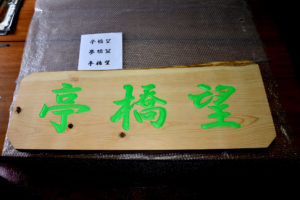 亭橋望
亭橋望
亭橋望
亭橋望